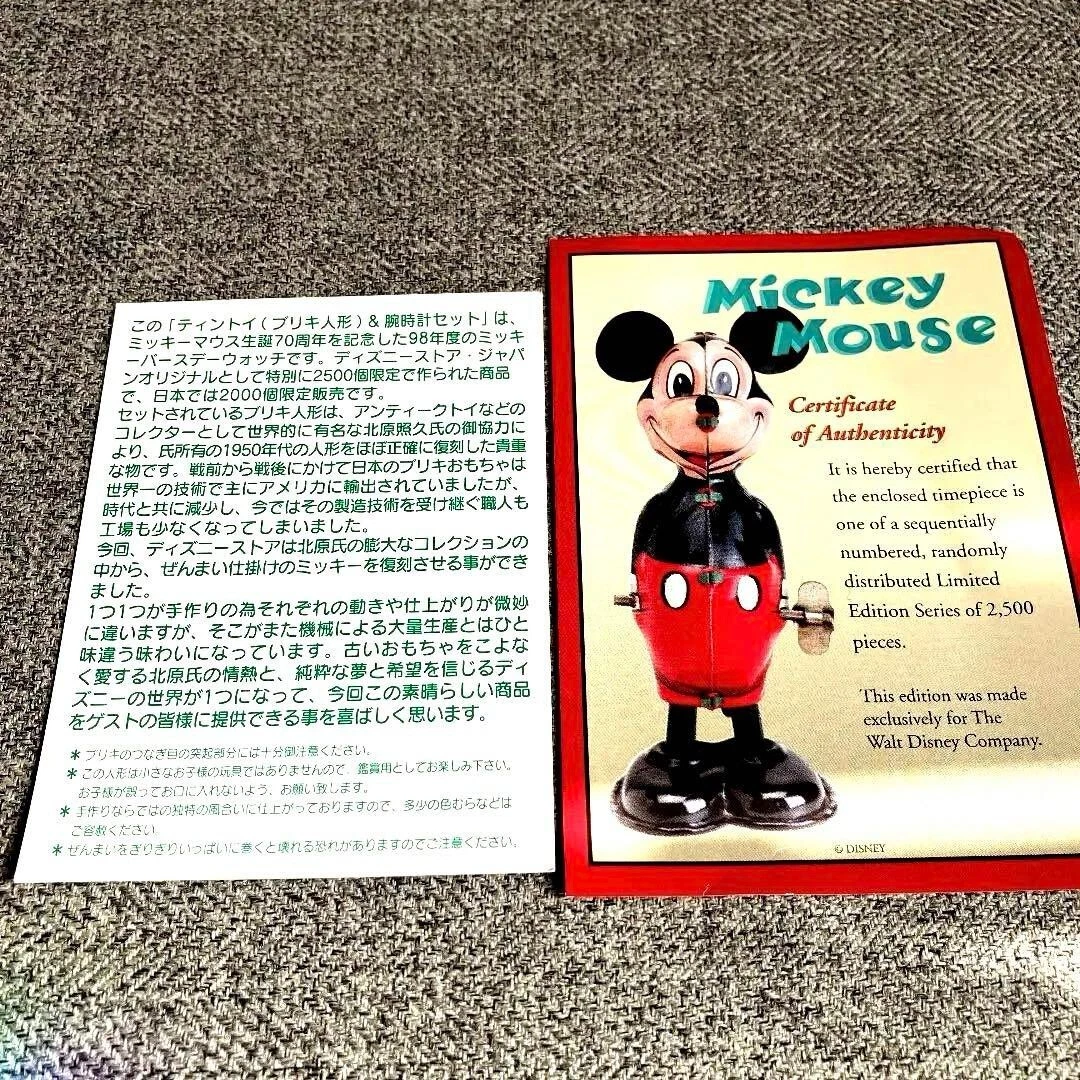 この「ティントイ(ブリキ人形)& 腕時計セット」は、
ミッキーマウス生誕70周年を記念した98年度のミッキ
ーバースデーウォッチです。ディズニーストア・ジャパ
ンオリジナルとして特別に2500個限定で作られた商品
で、日本では2000個限定販売です。
セットされているブリキ人形は、アンティークトイなどの
コレクターとして世界的に有名な北原照久氏の御協力に
より、氏所有の1950年代の人形をほぼ正確に復刻した貴重
な物です。戦前から戦後にかけて日本のブリキおもちゃは
世界一の技術で主にアメリカに輸出されていましたが、
時代と共に減少し、今ではその製造技術を受け継ぐ職人も
工場も少なくなってしまいました。
今回、ディズニーストアは北原氏の膨大なコレクションの
中から、ぜんまい仕掛けのミッキーを復刻させる事ができ
ました。
1つ1つが手作りの為それぞれの動きや仕上がりが微妙
に違いますが、そこがまた機械による大量生産とはひと
味違う味わいになっています。古いおもちゃをこよな
く愛する北原氏の情熱と、純粋な夢と希望を信じるディ
ズニーの世界が1つになって、今回この素晴らしい商品
をゲストの皆様に提供できる事を喜ばしく思います。
＊ブリキのつなぎ目の突起部分には十分御注意ください。
＊この人形は小さなお子様の玩具ではありませんので、鑑賞用としてお楽しみ下さい。
お子様が誤ってお口に入れないよう、お願い致します。
＊手作りならではの独特の風合いに仕上がっておりますので、多少の色むらなどは
ご容赦ください。
＊ぜんまいをぎりぎりいっぱいに巻くと壊れる恐れがありますのでご注意ください。
Mickey
Mouse
Certificate
of Authenticity
It is hereby certified that
the enclosed timepiece is
one of a sequentially
numbered, randomly
distributed Limited
Edition Series of 2,500
pieces.
This edition was made
exclusively for The
Walt Disney Company.
© DISNEY